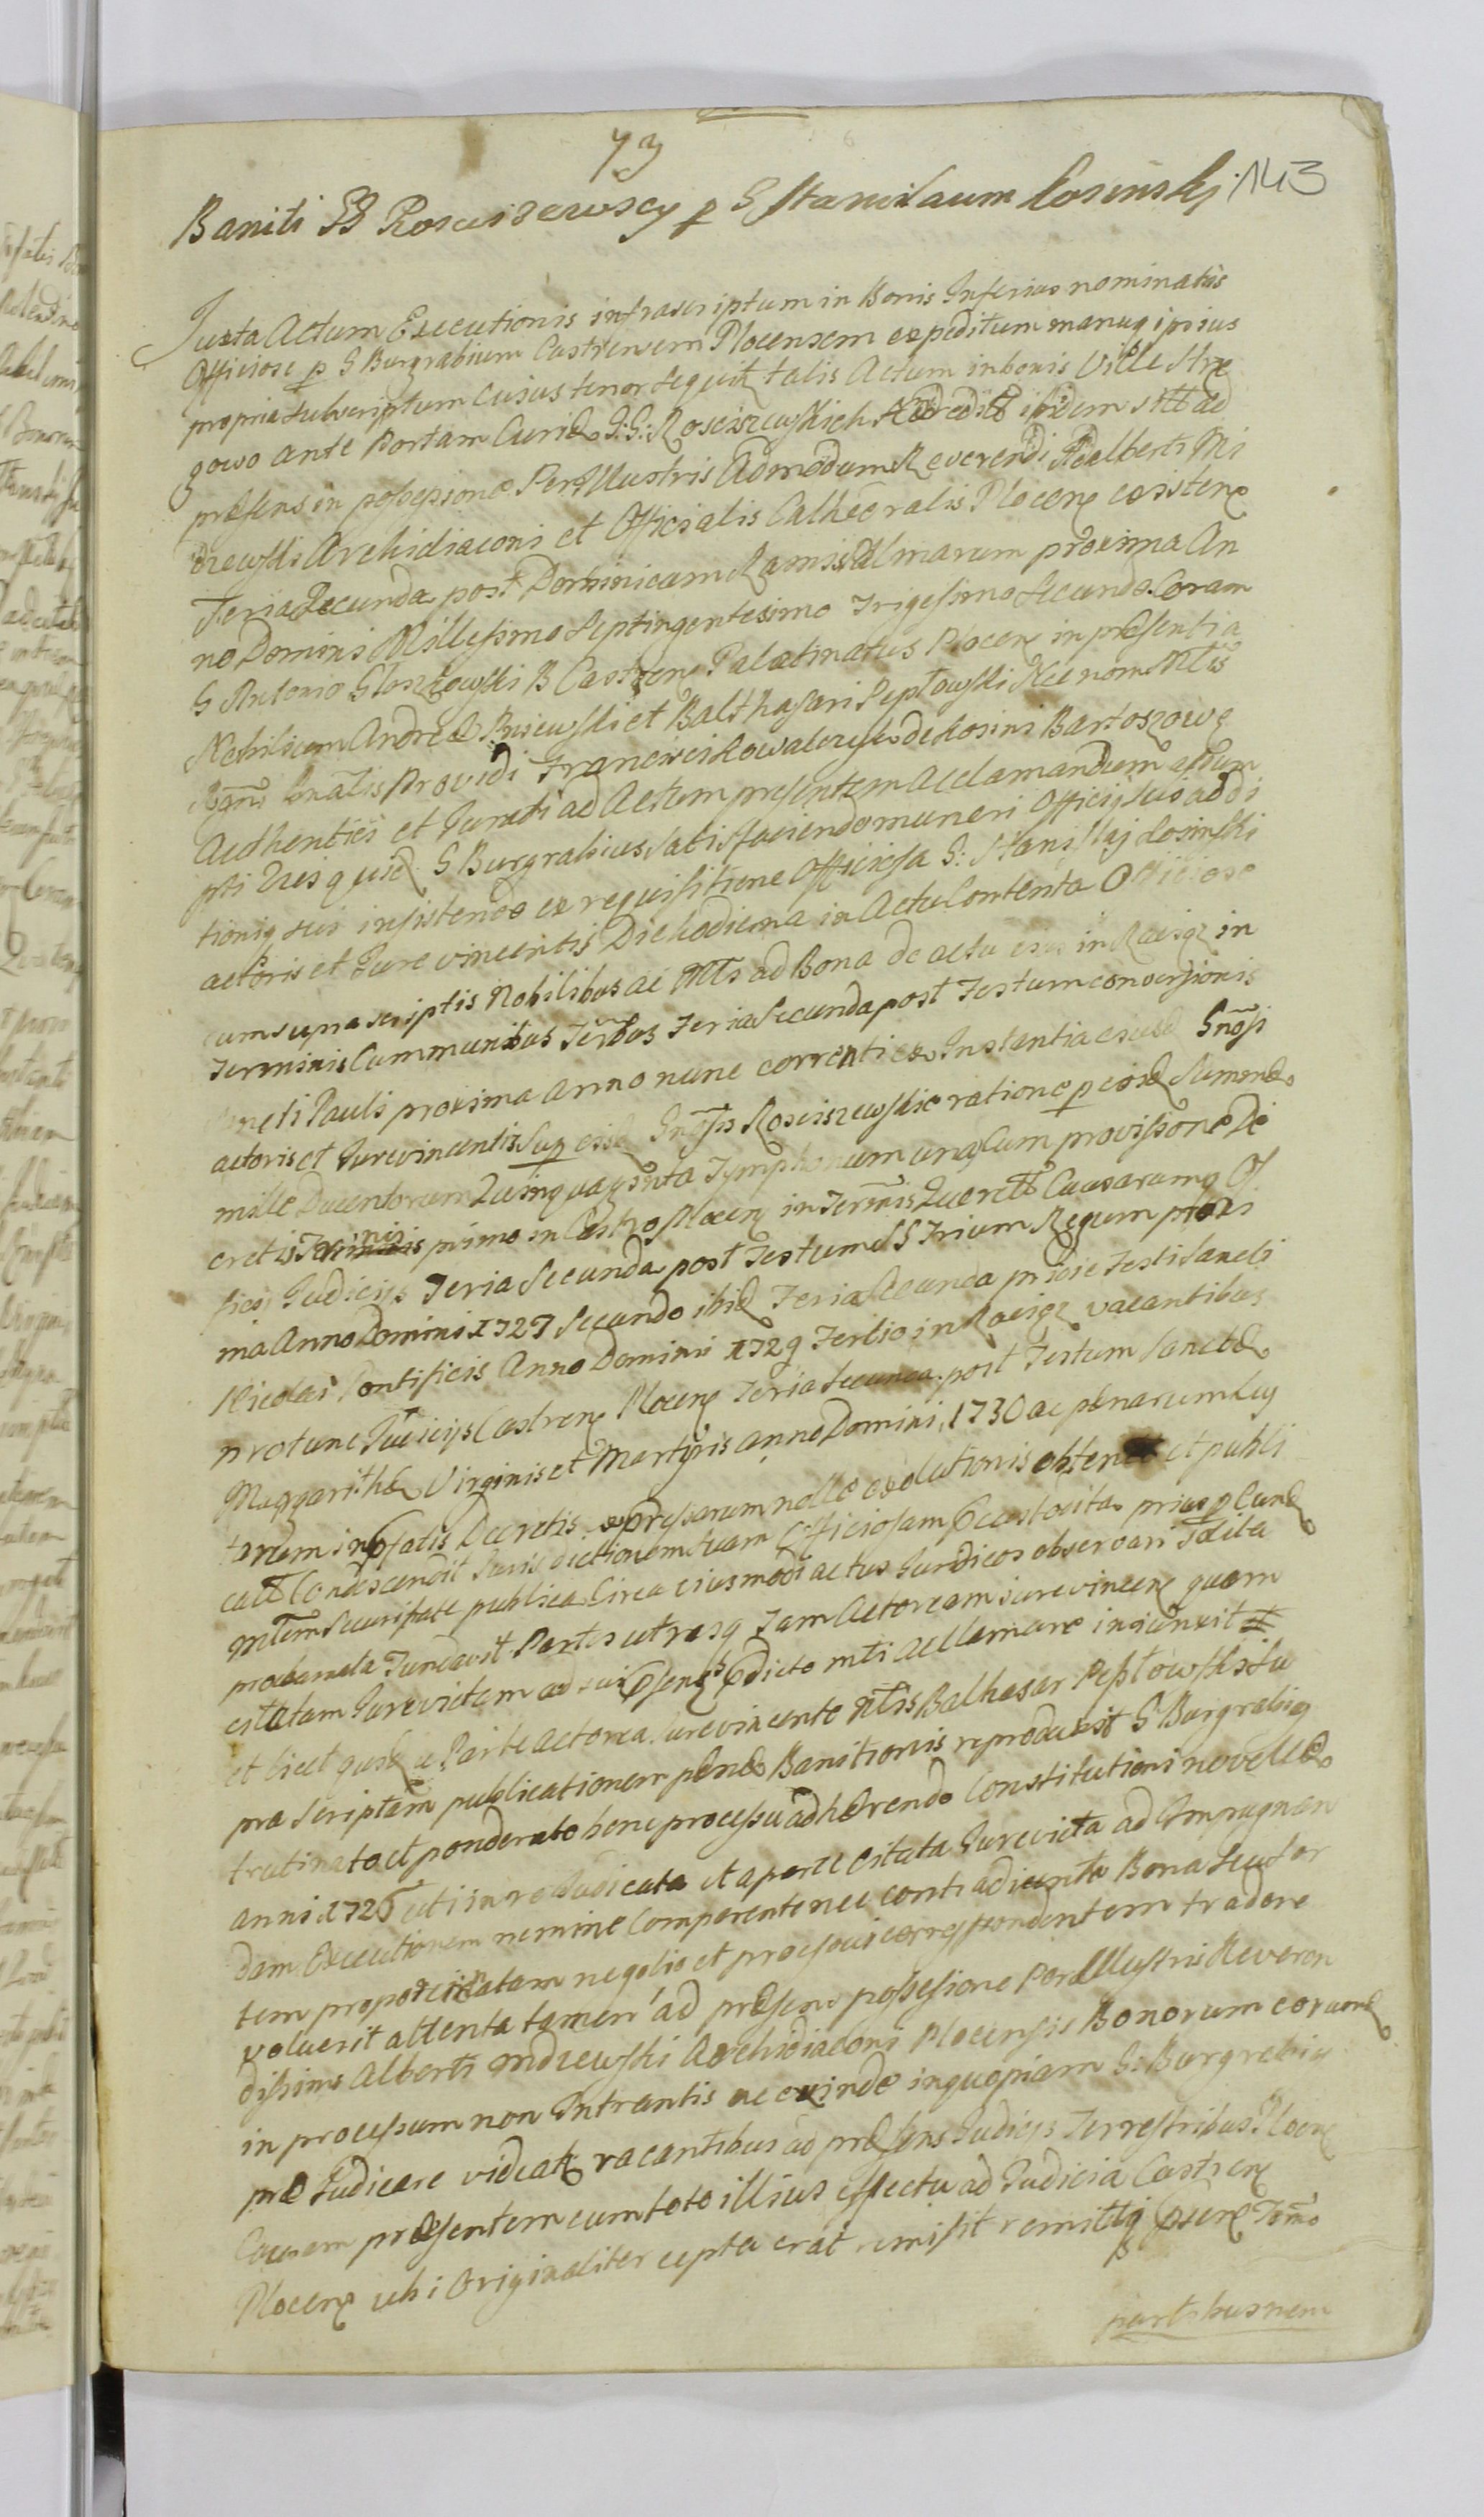 73
143
Baniti GG Rosciszewscy p G Stanislaum Losinski
Juxta Actum Executionis infrascriptum in Bonis Inferius nominatis
Officiose p G Burgrabium Castrensem Plocensem expeditum manuq ipsius
propria subscriptum Cujus tenor sequitr talis Actum in bonis Ville Strze
gowo ante Portam Curiæ G: G: Rosciszewskich ibidem sitt ad
præsens in possessione Perillustris Admodum Reverendi Adalberti Mi
Archidiaconi et Officialis Cathedralis Plocens existens
Feria Secunda post Dominicam Ramis Palmarum proxima An
no Domini Millesimo Septingentesimo Trigesimo Secundo. Coram
G Antonio B Castrens Palatinatus Plocens in præsentia
Nobilium Andreæ et Balthasari Peptowski Nec non Mtis
Rgni Gnalis Providi Francisci Kowalczyk de Bartoszowe
Authentici et Jurati ad Actum presentem acclamandum
pti G Burgrabius satisfaciendo muneri Officij sui addi
tioniq sui insistendo ex requisitione Officiosa G: Stanislaj Losinski
actoris et Jure vincentis Die hodierna in Actu Contenta Officiose
cum supra scriptis Nobilibus ac Mts ad Bona de actu in Raciąz in
Terminis Communibus Feria Secunda post Festum conversionis
Sancti Pauli proxima anno nunc currenti ex Instantia ejusd Gnosi
actoris et Jurevincentis Sup eisd Gnosis Rosciszewskie ratione p eosd Summæ
mille Ducentorum Quinquaginta Tymphonum una cum provisione De
cretis Terminis primo in Castro Plocens in Terminis Querell Causarumq Of
ficij Judicijs Feria Secunda post Festum SS Trium Regum proxi
ma Anno Domini 1727 Secundo ibid Feria Secunda pridie Festi Sancti
Nicolai Pontificis Anno Domini 1729 Tertio in Raciąz vacantibus
protunc Judicijs Castrens Plocens Feria Secunda post Festum Sanctæ
Margarithæ Virginis et Martyris anno Domini 1730 ac pænarum Luy
tarum in Decretis expressarum nollo exolutionis obtent et publi
catt Condescendit Juris dictionem suam Officiosam prius p eund
Mtem Securitate publica Circa eiusmodi actus Juridicos observari
proclamata Fundavit Partes utrasq Jam Actoream jurevincens quam
citatam Jurevictam ad sui edicto mti acclamare injunxit
et licet Parte actorea Jurevincente Mtis Balthasar Peptowski
præ scriptam publicationem pænæ Banitionis reproduxit G Burgrabiq
trutinato et ponderato hene processu adhærendo Constitutioni novellæ
anni 1726 uti in re judicata et a parte citata Jurevicta ad Impugnan
dam Executionem nemine Comparente nec contradicente Bona seu sor
tem proportionatam negotio et processui correspondentem tradere
voluerit attenta tamen ad præsens possessione Perillustris Reveren
dissimi Alberti Archidiaconi Plocensis Bonorum eorund
in processum non Intrantis ne exinde inquopiam G: Burgrabiu
præ Judicare videatr vacantibus ad præsens Judicijs Terrestribus Plocens
Causam præsentem cum toto illius effectu ad Judicia Castrens
Plocens ubi Originaliter cepta erat remisit remittiq
partibus nem